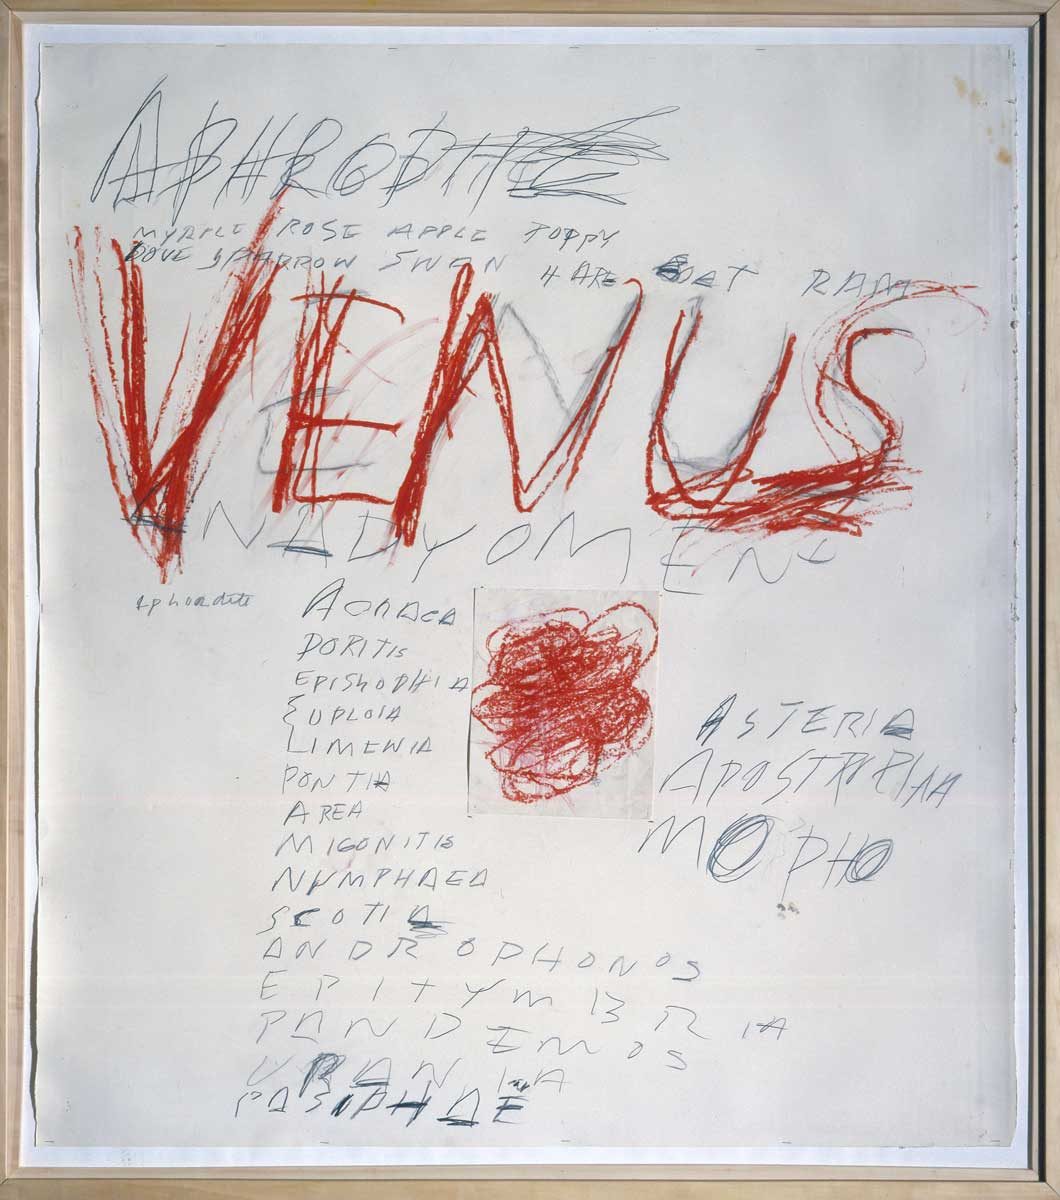 APHRODITE
MYRTLE ROSE APPLE POPPY
DOVE SPARROW SWAN HARE GOAT RAM
VENUS
ANADYOMENA
Aphrodite
DORITIS
EPISKOPHIA
EUPLOIA
LIMENIA
PONTIA
AREA
MIGONITIS
NUMPHAEA
SCOTIA
ANDROPHONOS
EPITYMBRIA
PANDEMOS
URANIA
PASIPHAE
ASTERIA
APOSTROPHIA
MOPHO